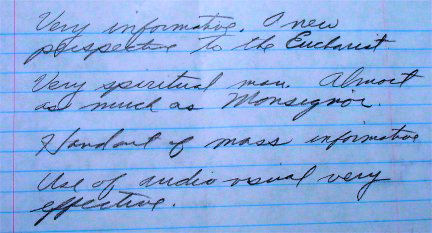 Very informative. A new
perspective to the Eucharist
Very spiritual man. Almost
as much as Monsignor.
Handout of mass informative
Use of audio visual very
effective.